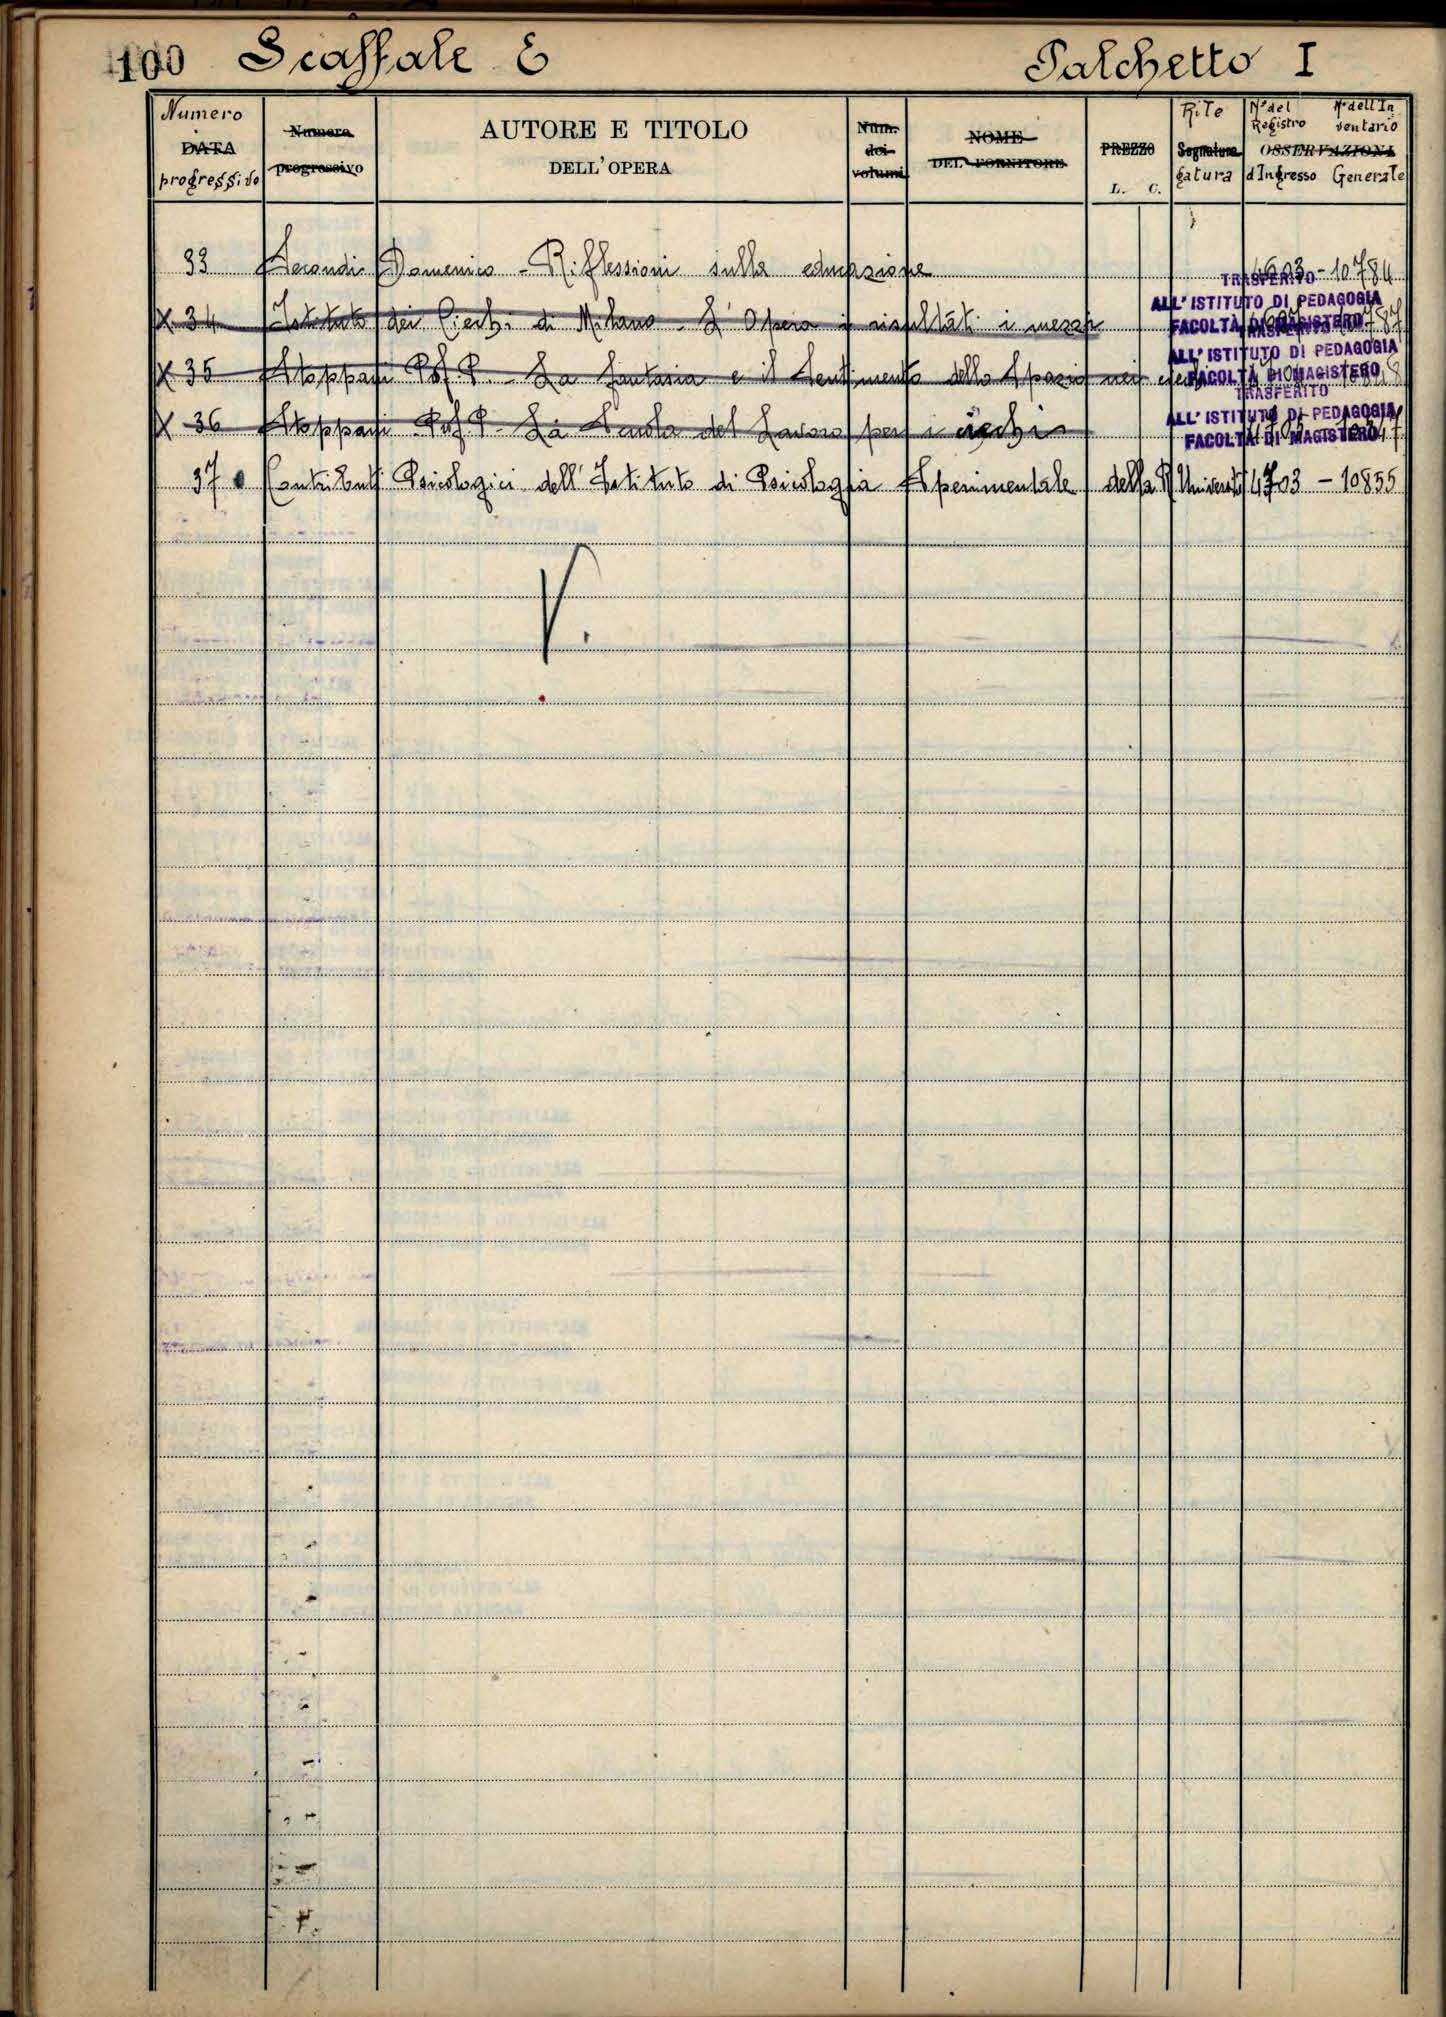 100 Scaffale E Palchetto I
Numero DATA progressivo
Numero progressivo
AUTORE E TITOLO
DELL'OPERA
Num. dei volumi
NOME
DEL FORNITORE
PREZZO
L. C.
Rile Segnatura gatura
N° del Registro d'Ingresso
OSSERVAZIONI
N° dell'Inventario Generale
33 Secondi Domenico - Riflessioni sulla educazione - 10784
TRASFERITO
ALL'ISTITUTO DI PEDAGOGIA
FACOLTÀ DI MAGISTERO
X 34 Istituto dei Ciechi di Milano - L'Opera i risultati i mezzi
TRASFERITO
ALL'ISTITUTO DI PEDAGOGIA
FACOLTÀ DI MAGISTERO
X 35 Stoppani Prof. P. - La fantasia e il Sentimento dello Spazio nei ciechi
TRASFERITO
ALL'ISTITUTO DI PEDAGOGIA
FACOLTÀ DI MAGISTERO
X 36 Stoppani Prof. P. - La Scuola del Lavoro per i ciechi
37 Contributi Psicologici dell'Istituto di Psicologia Sperimentale della R Università 4703 - 10855
V.